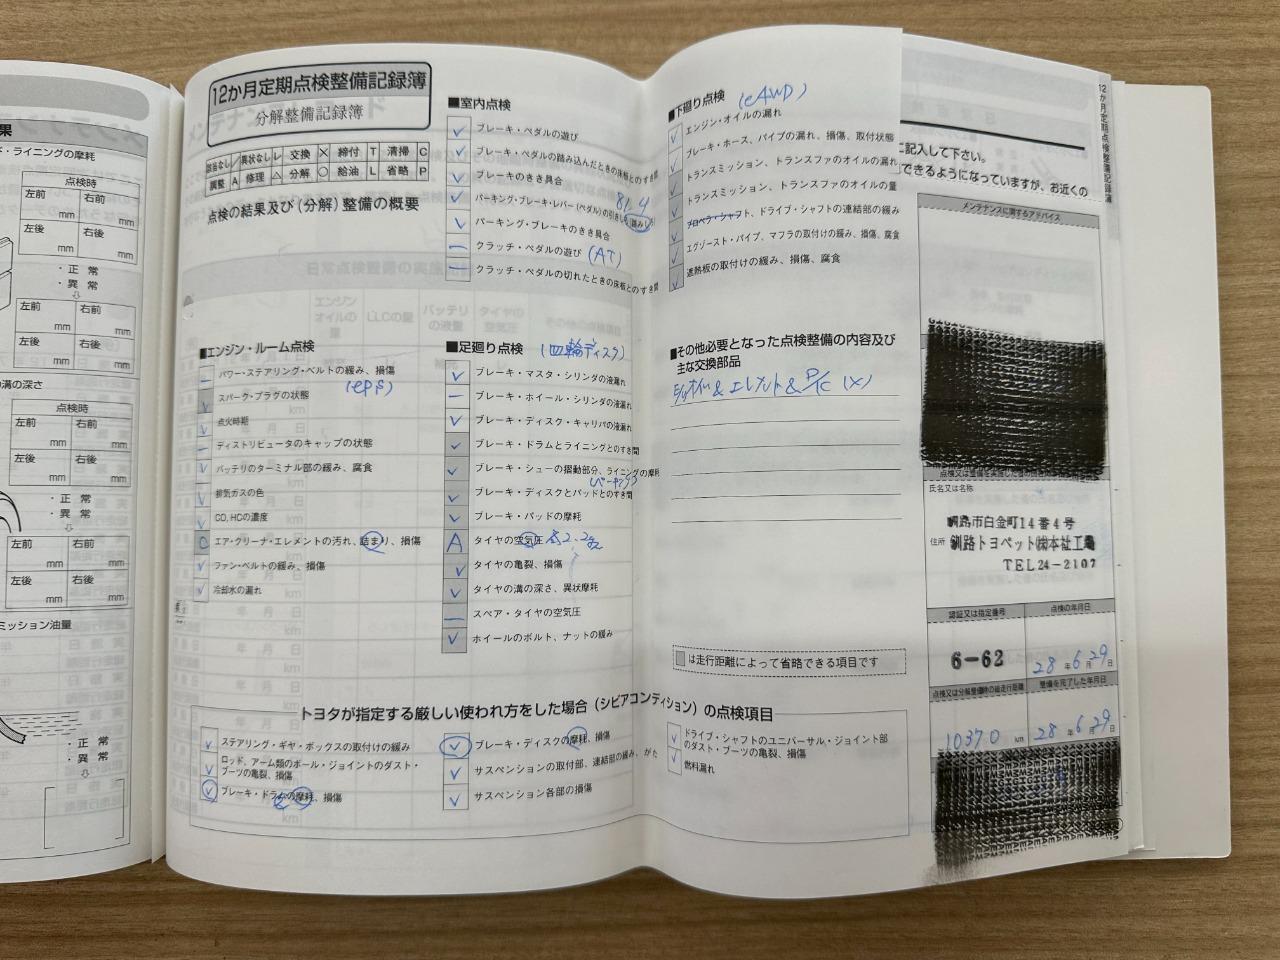 果
ド・ライニングの摩耗
点検時
左前
mm
右前
mm
左後
mm
右後
mm
・正 常
・異 常
左前
mm
右前
mm
左後
mm
右後
mm
の溝の深さ
点検時
左前
mm
右前
mm
左後
mm
右後
mm
・正 常
・異 常
左前
mm
右前
mm
左後
mm
右後
mm
ミッション油量
・正 常
・異 常
12か月定期点検整備記録簿
分解整備記録簿
該当なし / 異状なし レ 交換 × 締付 T 清掃 C
調整 A 修理 △ 分解 ○ 給油 L 省略 P
点検の結果及び(分解)整備の概要
■エンジン・ルーム点検
パワー・ステアリング・ベルトの緩み、損傷
(EPS)
スパーク・プラグの状態
点火時期
ディストリビュータのキャップの状態
バッテリのターミナル部の緩み、腐食
排気ガスの色
CO,HCの濃度
C エア・クリーナ・エレメントの汚れ、詰まり、損傷
ファン・ベルトの緩み、損傷
冷却水の漏れ
■室内点検
ブレーキ・ペダルの遊び
ブレーキ・ペダルの踏み込んだときの床板とのすき間
ブレーキのきき具合
パーキング・ブレーキ・レバー(ペダル)の引きしろ(踏みしろ)
パーキング・ブレーキのきき具合
クラッチ・ペダルの遊び (AT)
クラッチ・ペダルの切れたときの床板とのすき間
■足廻り点検 (四輪ディスク)
ブレーキ・マスタ・シリンダの液漏れ
ブレーキ・ホイール・シリンダの液漏れ
ブレーキ・ディスク・キャリパの液漏れ
ブレーキ・ドラムとライニングとのすき間
ブレーキ・シューの摺動部分、ライニングの摩耗
(パーキング)
ブレーキ・ディスクとパッドとのすき間
ブレーキ・パッドの摩耗
A タイヤの空気圧
タイヤの亀裂、損傷
タイヤの溝の深さ、異状摩耗
スペア・タイヤの空気圧
ホイールのボルト、ナットの緩み
■下廻り点検 (eAWD)
エンジン・オイルの漏れ
ブレーキ・ホース、パイプの漏れ、損傷、取付状態
トランスミッション、トランスファのオイルの漏れ
トランスミッション、トランスファのオイルの量
プロペラ・シャフト、ドライブ・シャフトの連結部の緩み
エグゾースト・パイプ、マフラの取付けの緩み、損傷、腐食
遮熱板の取付けの緩み、損傷、腐食
■その他必要となった点検整備の内容及び
主な交換部品
E/gオイル & エレメント & P/C (×)
は走行距離によって省略できる項目です
トヨタが指定する厳しい使われ方をした場合(シビアコンディション)の点検項目
ステアリング・ギヤ・ボックスの取付けの緩み
ロッド、アーム類のボール・ジョイントのダスト・
ブーツの亀裂、損傷
ブレーキ・ドラムの摩耗、損傷
ブレーキ・ディスクの摩耗、損傷
サスペンションの取付部、連結部の緩み、がた
サスペンション各部の損傷
ドライブ・シャフトのユニバーサル・ジョイント部
のダスト・ブーツの亀裂、損傷
燃料漏れ
に記入して下さい。
できるようになっていますが、お近くの
12か月定期点検整備記録簿
メンテナンスに関するアドバイス
氏名又は名称
釧路市白金町14番4号
住所 釧路トヨペット㈱本社工場
TEL24-2107
認証又は指定番号
点検の年月日
6-62
28年6月29日
点検又は分解整備時の総走行距離
整備を完了した年月日
10370 km
28年6月29日